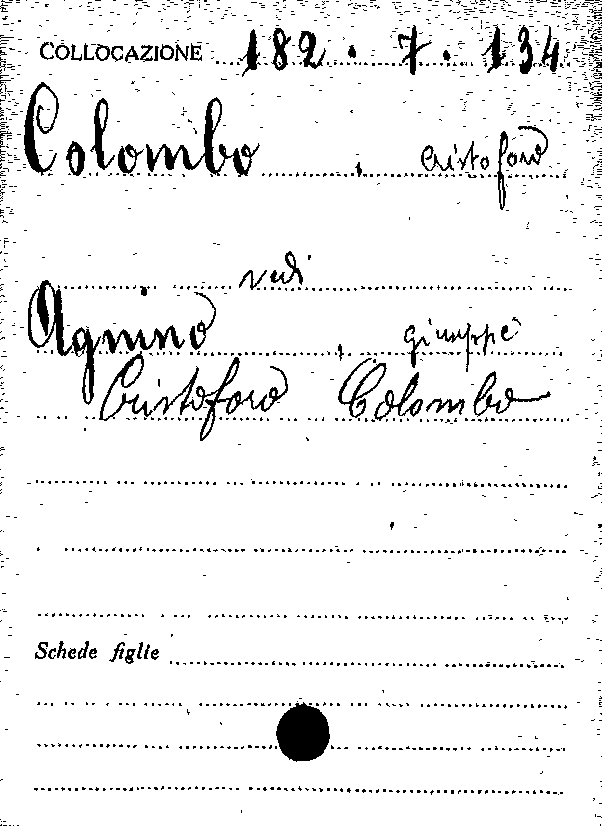 COLLOCAZIONE 182 . 7 . 134
Colombo , Cristoforo
vedi
Agnino , Giuseppe
Cristoforo Colombo
Schede figlie